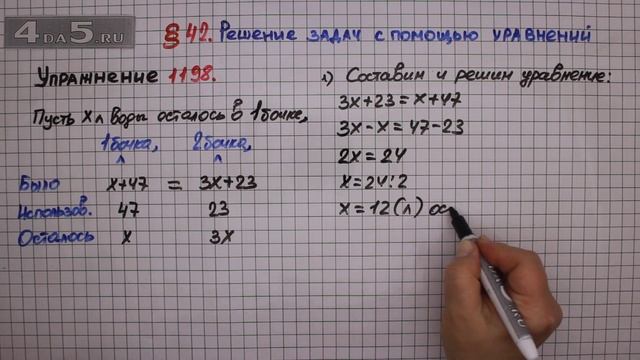 4DA5.RU
§ 42. Решение задач с помощью уравнений
Упражнение 1198.
Пусть x л воды осталось в 1 бочке,
1 бочка, 2 бочка,
л л
Было x+47 = 3x+23
Использов. 47 23
Осталось x 3x
1) Составим и решим уравнение:
3x+23=x+47
3x-x=47-23
2x=24
x=24:2
x=12(л) ос